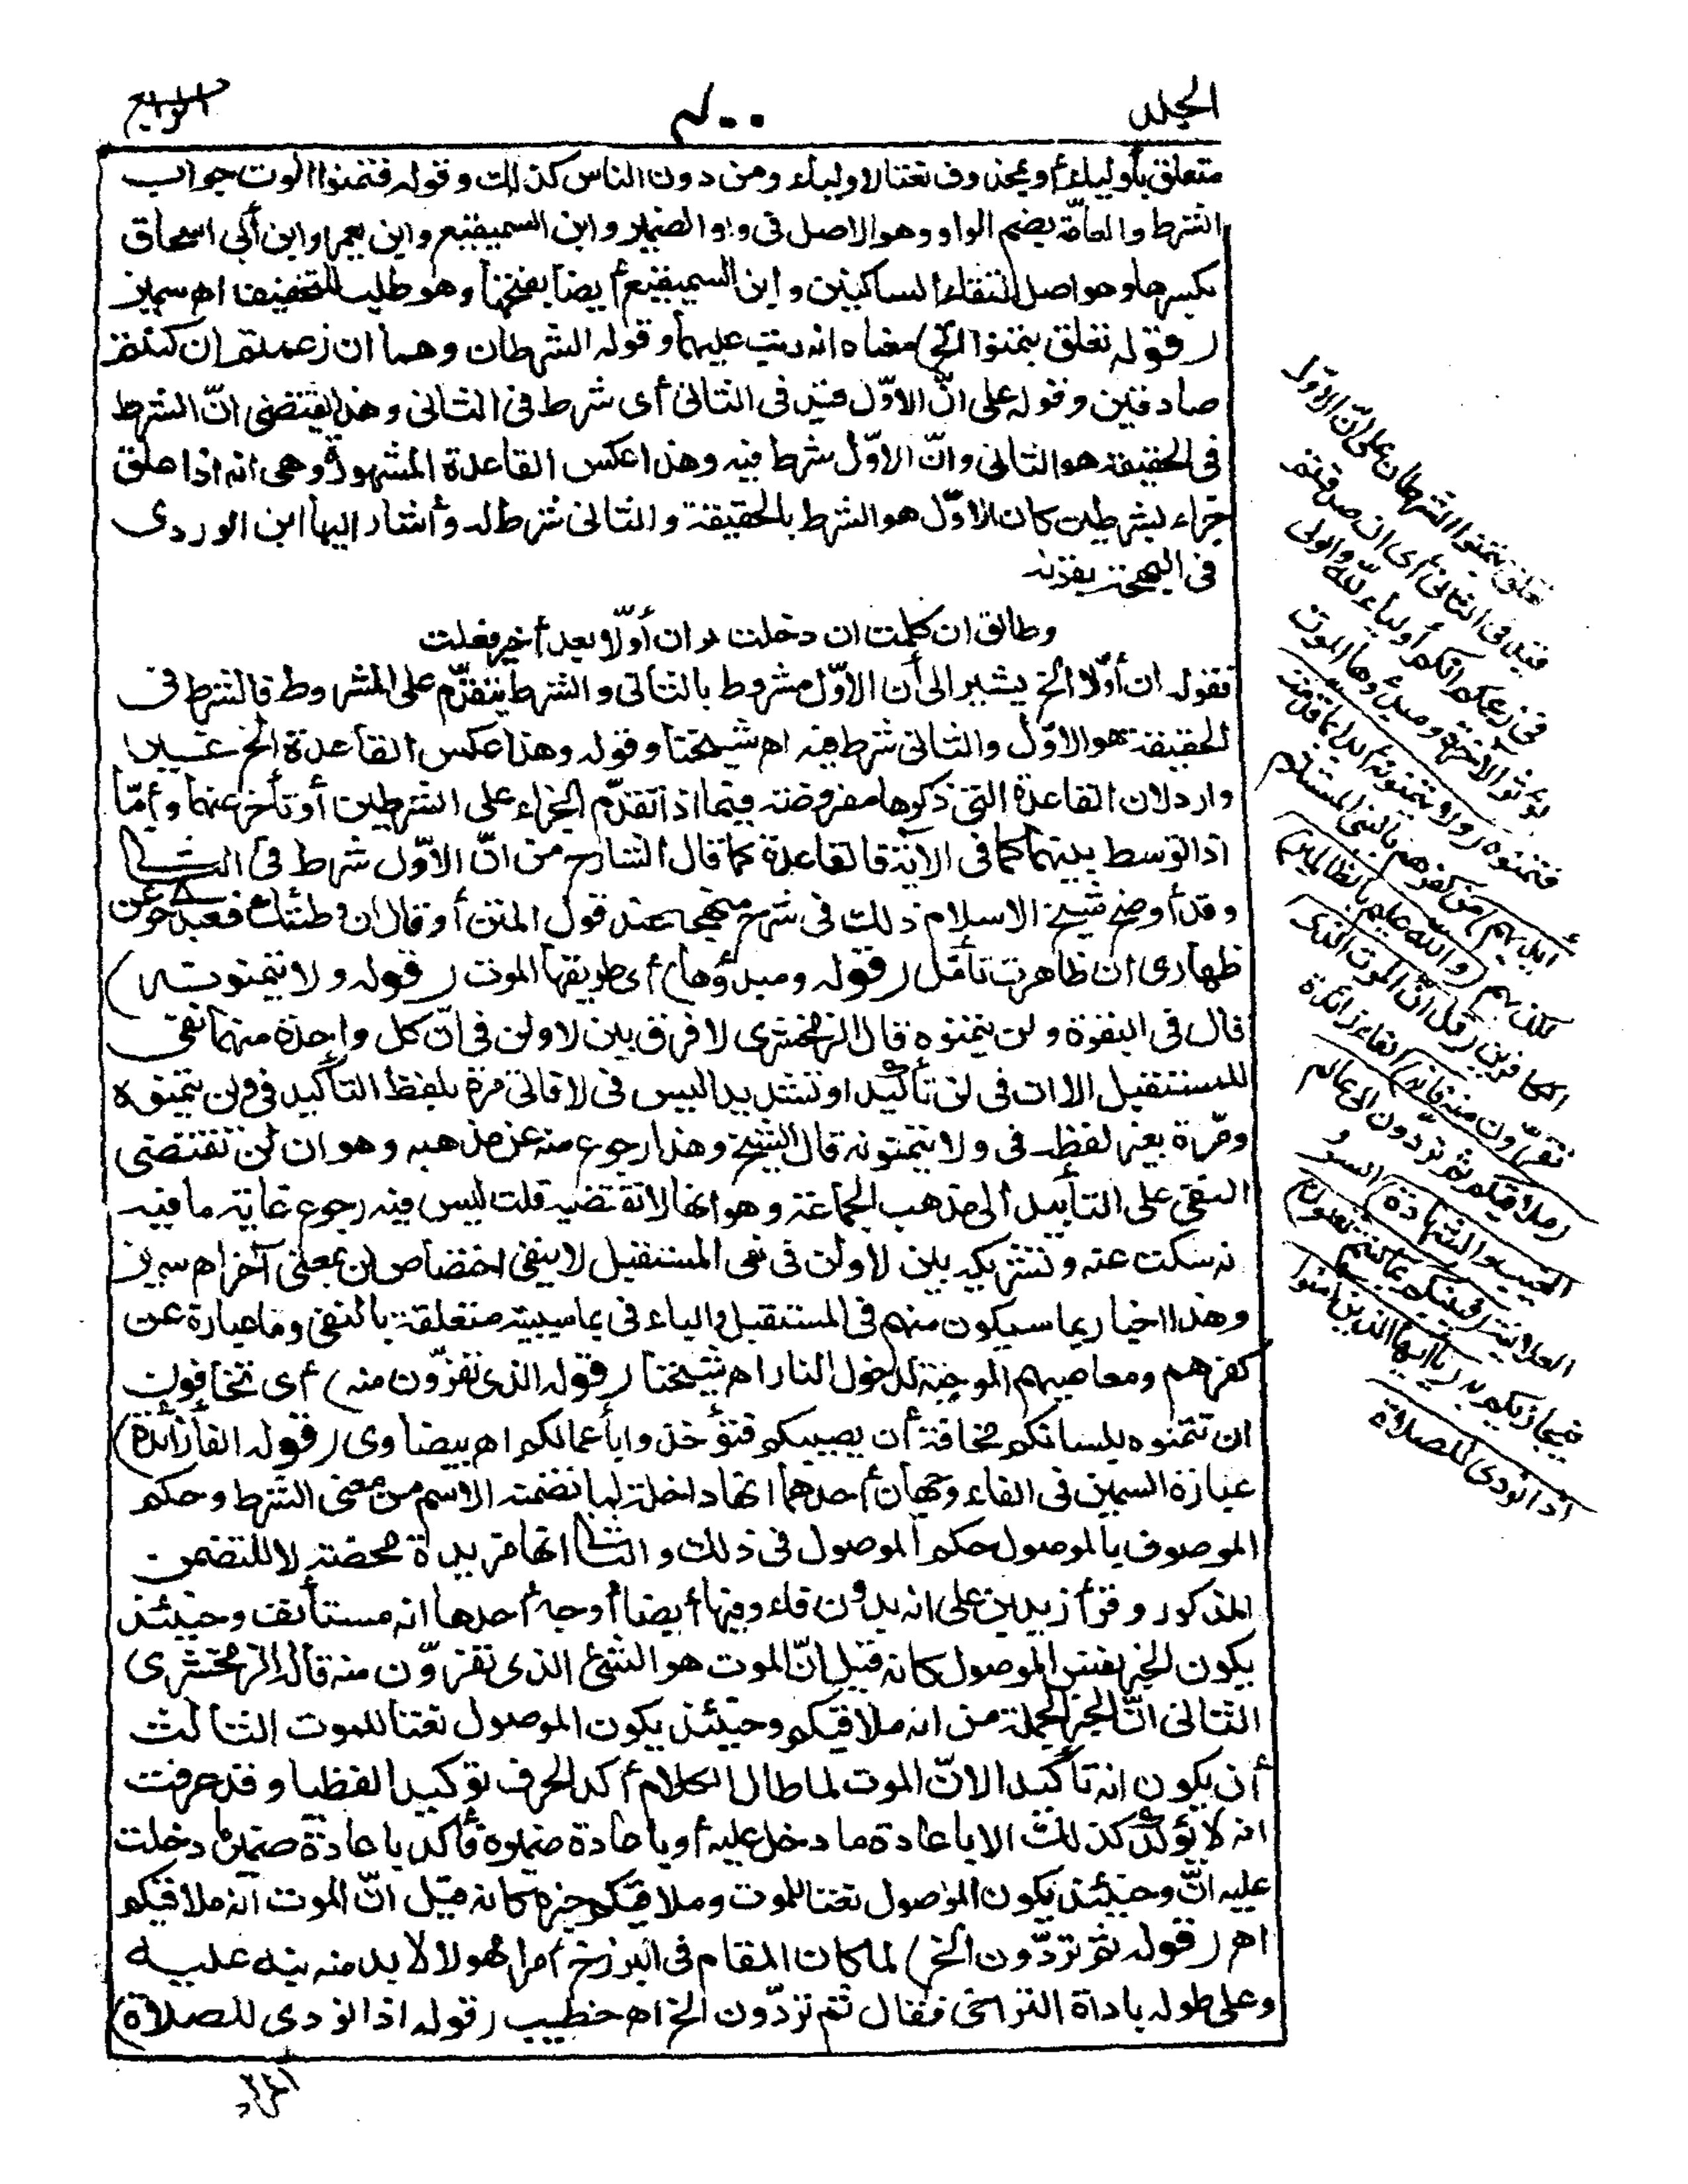 الجلد
٤٠٠
الرابع
متعلق بأولياء أو بمحذوف نعتا لاولياء ومن دون الناس كذلك وقوله فتمنوا الموت جواب
الشرط والعامّة بضم الواو وهو الاصل فى واو الضمير وابن السميفيع وابن يعمر وابن أبى اسحاق
بكسرها وهو اصل التقاء الساكنين وابن السميفيع أيضا بفتحها وهو طلب للتخفيف اه سمين
(قوله تعلق بتمنوا الخ) معناه انه رتب عليهما وقوله الشرطان وهما ان زعمتم ان كنتم
صادقين وقوله على انّ الاوّل قيد فى الثانى أى شرط فى الثانى وهذا يقتضى انّ الشرط
فى الحقيقة هو الثانى وانّ الاوّل شرط فيه وهذا عكس القاعدة المشهورة وهى انه اذا علق
جزاء بشرطين كان الاوّل هو الشرط بالحقيقة والثانى شرط له وأشار اليها ابن الوردى
فى البهجة بقوله
وطالق ان كلمت ان دخلت ان أوّلا بعد أخير فعلت
فقوله ان أوّلا الخ يشير الى أن الاوّل مشروط بالثانى والشرط يتقدّم على المشروط فالشرط فى
الحقيقة هو الاوّل والثانى شرط فيه اه شيخنا وقوله وهذا عكس القاعدة الخ غير
وارد لان القاعدة التى ذكروها مفروضة فيما اذا تقدّم الجزاء على الشرطين أو تأخر عنهما وأمّا
اذا توسط بينهما كما فى الآية فالقاعدة كما قال الشارح من انّ الاوّل شرط فى الثانى
وقد أوضح شيخ الاسلام ذلك فى شرح منهجه عند قول المتن أو قال ان وطئتك فعبدى حر عن
ظهارى ان ظاهرت تأمّل (قوله ومبدؤها) أى طريقها الموت (قوله ولا يتمنونه)
قال فى البقرة ولن يتمنوه قال الزمخشرى لا فرق بين لا ولن فى انّ كل واحدة منهما نفى
للمستقبل الا ان فى لن تأكيدا وتشديدا ليس فى لا فأتى مرة بلفظ التأكيد فى ولن يتمنوه
ومرّة بغير لفظه فى ولا يتمنونه قال الشيخ وهذا رجوع منه عن مذهبه وهو ان لن تقتضى
النفى على التأبيد الى مذهب الجماعة وهو انها لا تقتضيه قلت ليس فيه رجوع غاية ما فيه
نه سكت عنه وتشريكه بين لا ولن فى نفى المستقبل لا ينفى اختصاص لن بمعنى آخر اه سمين
وهذا اخبار بما سيكون منهم فى المستقبل والباء فى بما سببية متعلقة بالنفى وما عبارة عن
كفرهم ومعاصيهم الموجبة لدخول النار اه شيخنا (قوله الذى تفرّون منه) أى تخافون
ان تتمنوه بلسانكم مخافة أن يصيبكم فتؤخذوا بأعمالكم اه بيضاوى (قوله الفاء زائدة)
عبارة السمين فى الفاء وجهان أحدهما انها داخلة لما تضمنه الاسم من معنى الشرط وحكم
الموصوف بالموصول حكم الموصول فى ذلك والثانى انها مزيدة محضة لا للتضمن
المذكور وقرأ زيد بن على انه بدون فاء وفيها أيضا أوجه أحدها انه مستأنف وحينئذ
يكون الخبر نفس الموصول كانه قيل انّ الموت هو الشئ الذى تفرّون منه قاله الزمخشرى
الثانى انّ الخبر الجملة من انه ملاقيكم وحينئذ يكون الموصول نعتا للموت الثالث
أن يكون انه تأكيدا لانّ الموت لما طال الكلام أكد الحرف توكيدا لفظيا وقد عرفت
انه لا يؤكد كذلك الا باعادة ما دخل عليه أو باعادة ضميره فأكد باعادة ضمير ما دخلت
عليه انّ وحينئذ يكون الموصول نعتا للموت وملاقيكم خبره كانه قيل انّ الموت انه ملاقيكم
اه (قوله ثم تردّون الخ) لما كان المقام فى البرزخ أمرا مهولا لا بد منه نبه عليه
وعلى طوله باداة التراخى فقال ثم تردّون الخ اه خطيب (قوله اذا نودى للصلاة)
تعلق بتمنوا الشرطان على انّ الاوّل
قيد فى الثانى أى ان صدقتم
فى زعمكم انكم أولياء لله والولى
يؤثر الآخرة ومبدؤها الموت
فتمنوه (ولا يتمنونه أبدا بما قدّمت
أيديهم) من كفرهم بالنبى المستلزم
لكذبهم (والله عليم بالظالمين)
الكافرين (قل انّ الموت الذى
تفرّون منه فانه) الفاء زائدة
(ملاقيكم ثم تردّون الى عالم
الغيب والشهادة) السر و
العلانية (فينبئكم بما كنتم تعملون)
فيجازيكم به (يا أيها الذين آمنوا
اذا نودى للصلاة